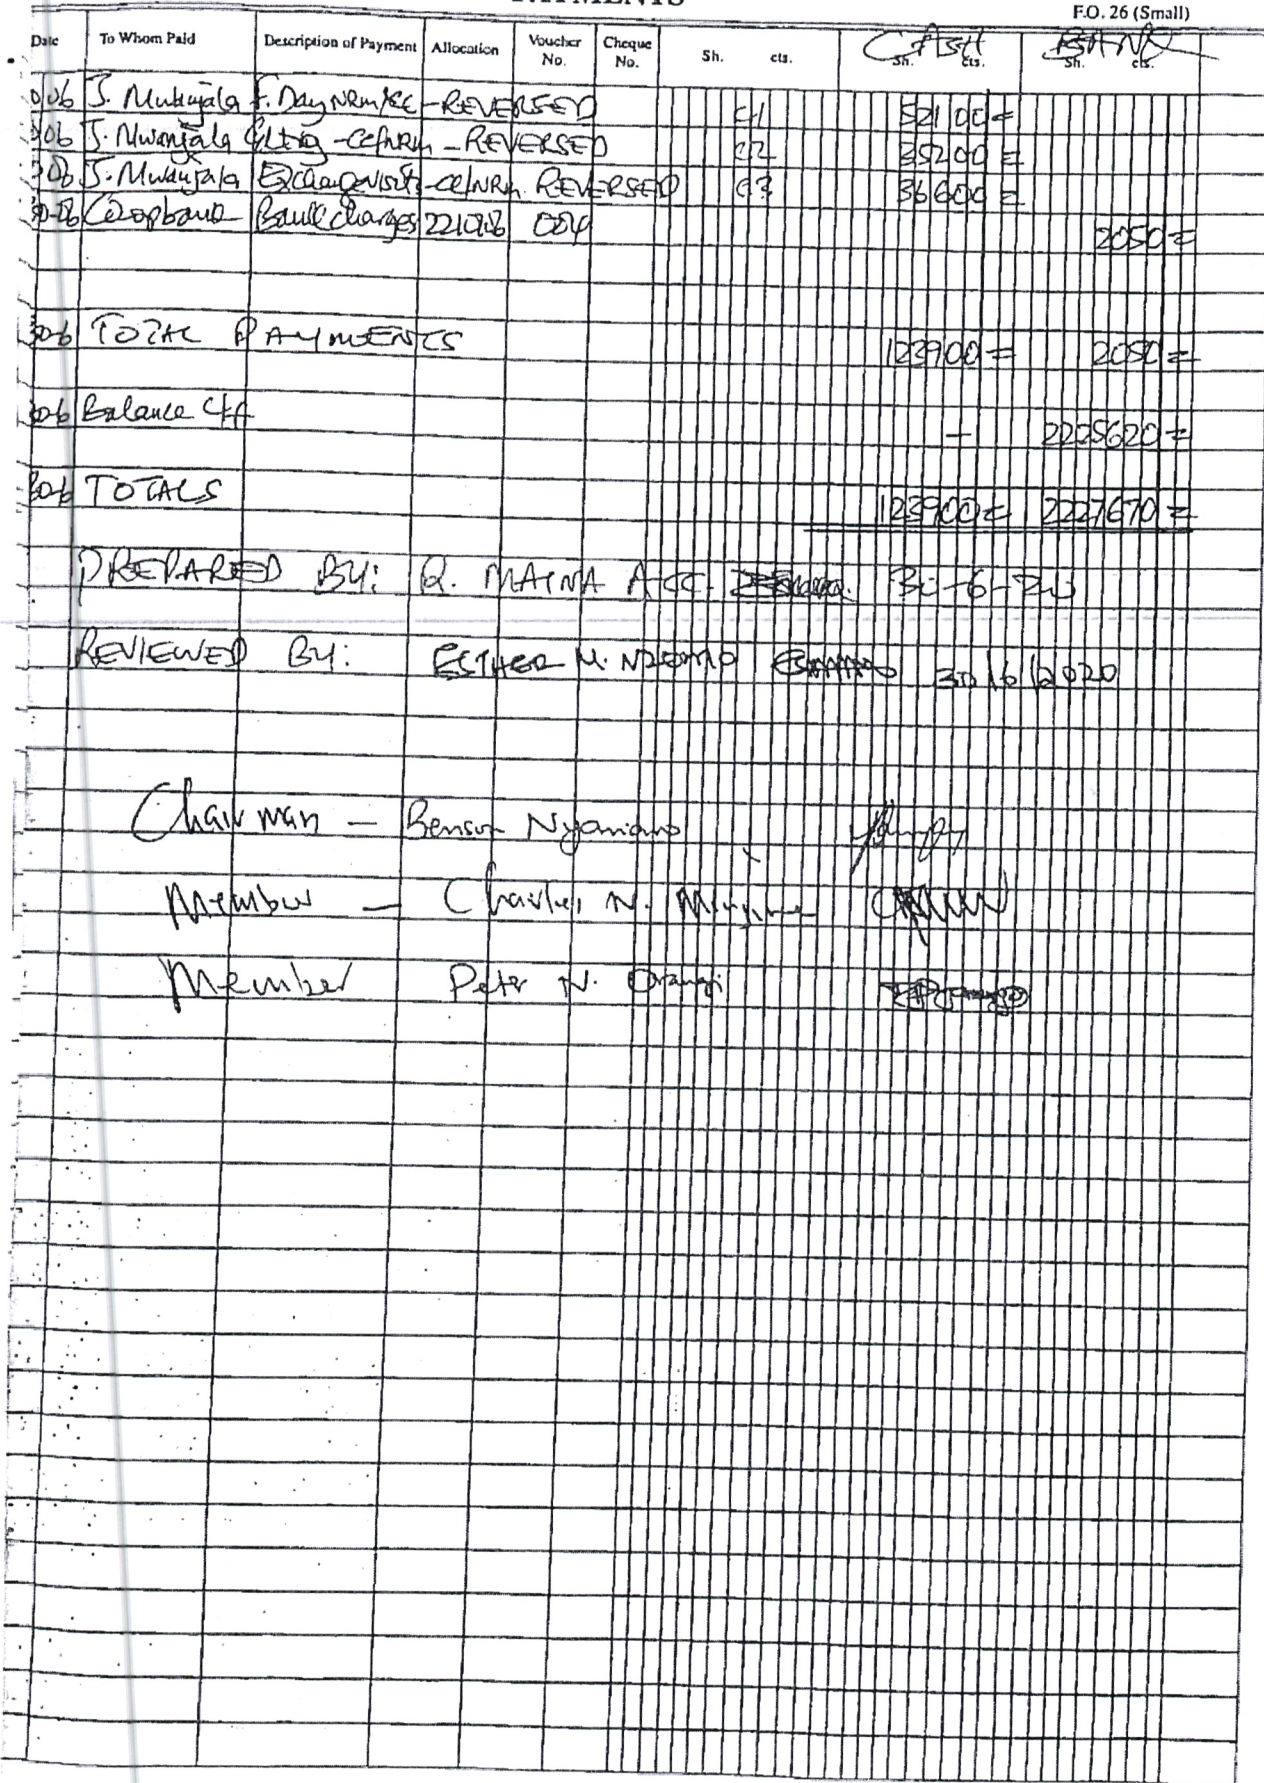 PAYMENTS
F.O. 26 (Small)
Date To Whom Paid Description of Payment Allocation Voucher No. Cheque No. Sh. cts. CASH Sh. cts. BANK Sh. cts.
J. Mwanjala F. Day NRM/CC - REVERSED C1 52100=
J. Mwanjala - CC/NRM - REVERSED C2 35200=
J. Mwanjala Exchange visit - CC/NRM REVERSED C3 36600=
30-06 Coopbank Bank charges 004 2050=
30-6 TOTAL PAYMENTS 123900= 2050=
30-6 Balance - 2225620=
30-6 TOTALS 123900= 2227670=
PREPARED BY: Q. MAINA ACC.
REVIEWED BY: ESTHER M. NZOMO 30/6/2020
Chairman - Benson
Member - Charles N.
Member Peter N. Orangi